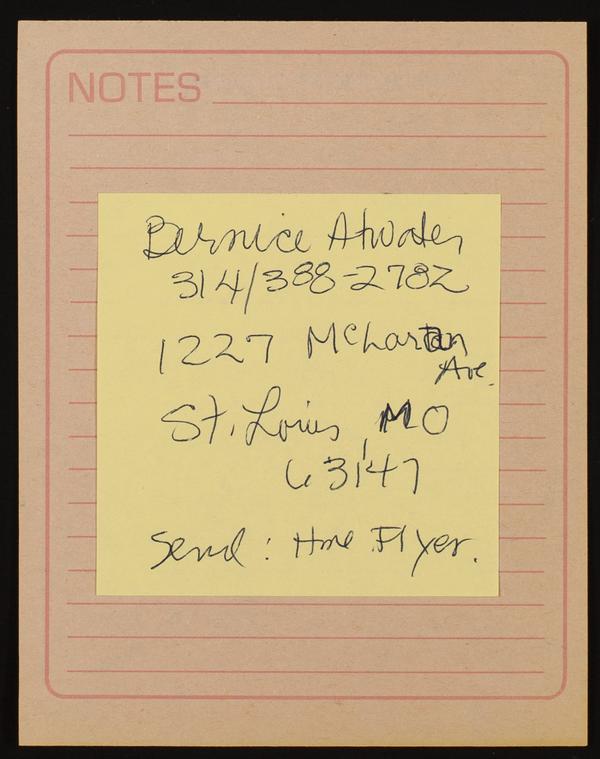 NOTES
Bernice Atwater
314/388-2782
1227 McLaran
Ave.
St. Louis, MO
63147
Send: Hme Flyer.